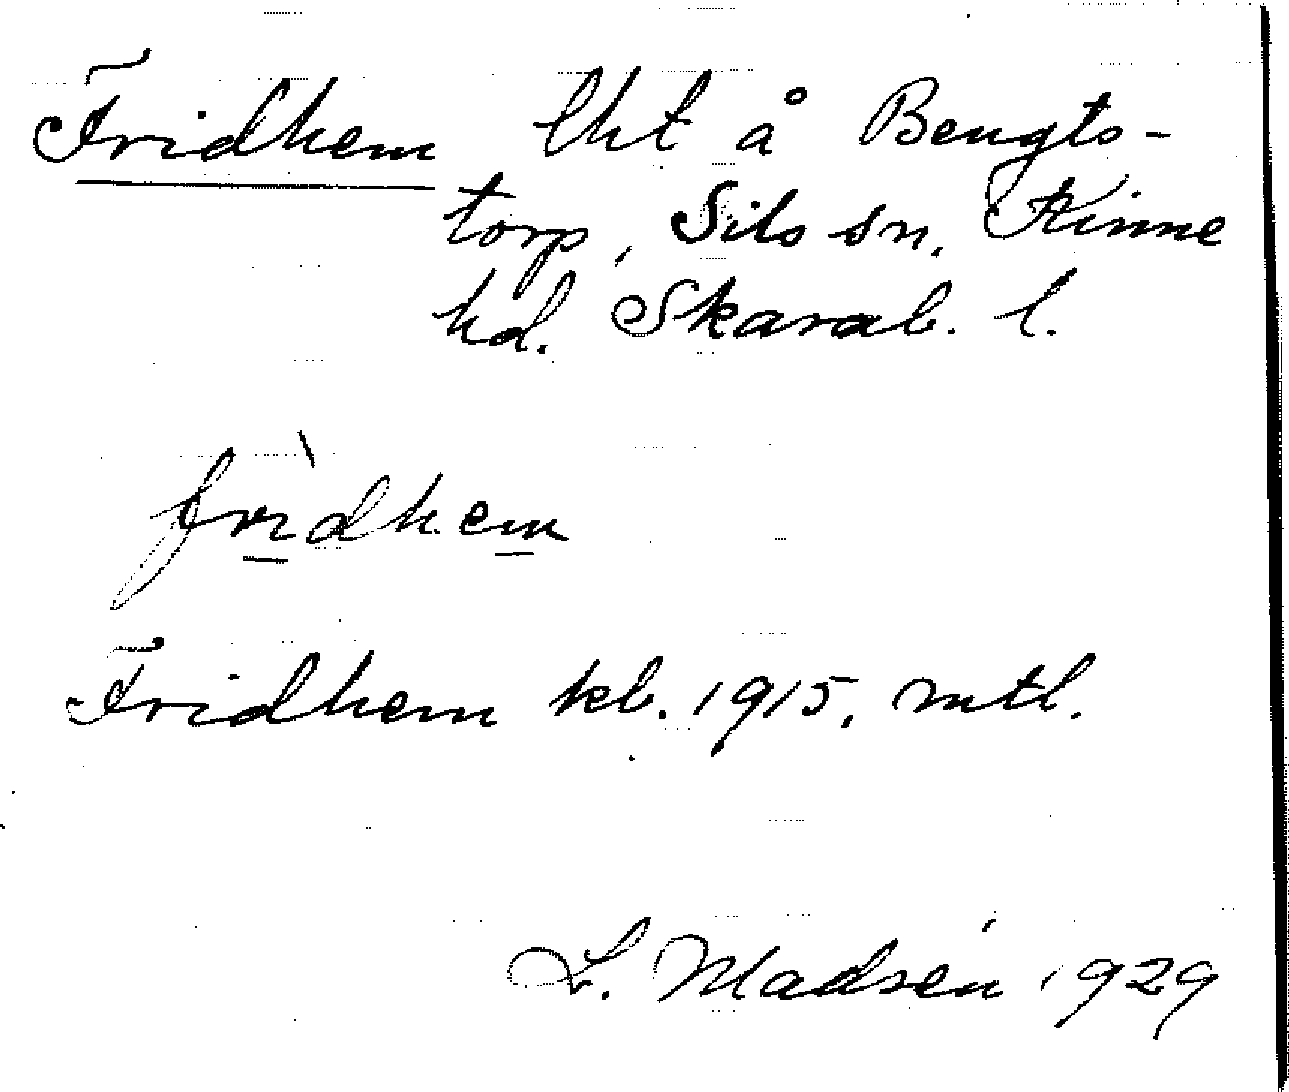 Fridhem lht å Bengts-
torp, Sils sn, Kinne
hd. Skarab. l.
frìdhem
Fridhem kb. 1915, mtl.
L. Madsén 1929